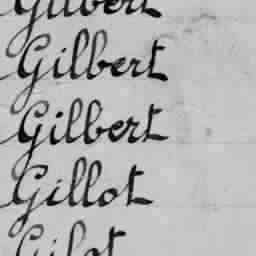 Gilbert
Gilbert
Gilbert
Gillot
Gilot